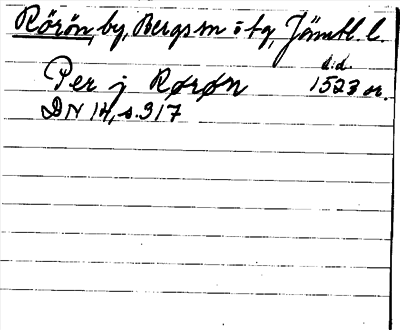 Rörön, by, Bergs sn o tg, Jämtl. l.
Per j Rørøn
s.d.
1523 or.
DN 14, s. 317